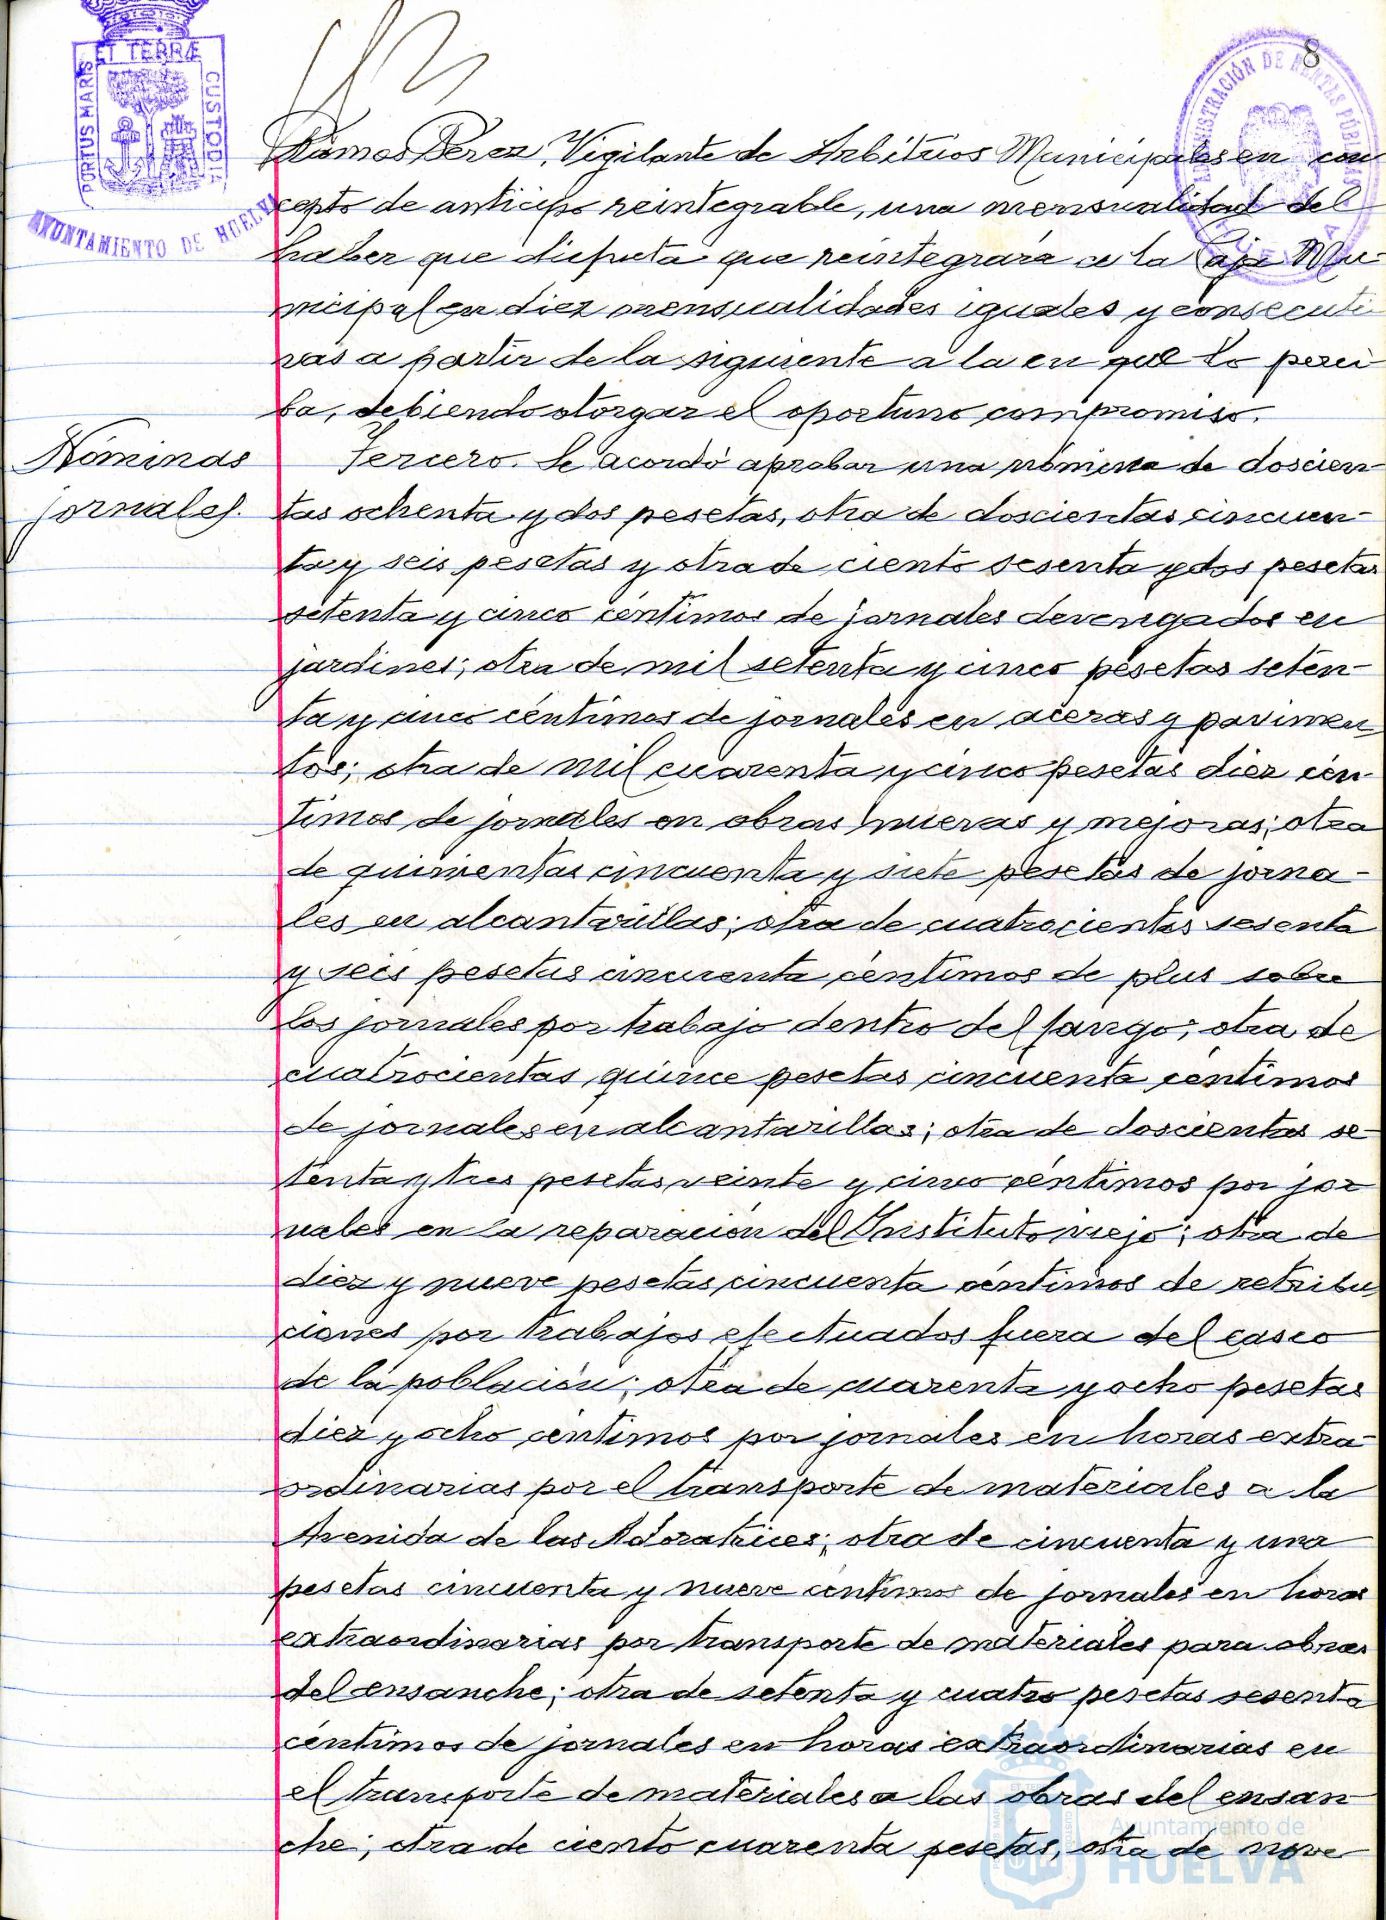 8
PORTUS MARIS ET TERRÆ CUSTODIA
AYUNTAMIENTO DE HUELVA
ADMINISTRACIÓN DE RENTAS PÚBLICAS
HUELVA
Ramos Pérez, Vigilante de Arbitrios Municipales en con
cepto de anticipo reintegrable, una mensualidad del
haber que disfruta que reintegrará a la Caja Mu-
nicipal en diez mensualidades iguales y consecuti
vas a partir de la siguiente a la en que lo perci
ba, debiendo otorgar el oportuno compromiso.
Nóminas
jornales.
Tercero. Se acordó aprobar una nómina de doscien
tas ochenta y dos pesetas, otra de doscientas cincuen-
ta y seis pesetas y otra de ciento sesenta y dos pesetas
setenta y cinco céntimos de jornales devengados en
jardines; otra de mil setenta y cinco pesetas seten-
ta y cinco céntimos de jornales en aceras y pavimen
tos; otra de mil cuarenta y cinco pesetas diez cén-
timos de jornales en obras nuevas y mejoras; otra
de quinientas cincuenta y siete pesetas de jorna-
les en alcantarillas; otra de cuatrocientas sesenta
y seis pesetas cincuenta céntimos de plus sobre
los jornales por trabajo dentro del fango; otra de
cuatrocientas quince pesetas cincuenta céntimos
de jornales en alcantarillas; otra de doscientas se-
tenta y tres pesetas veinte y cinco céntimos por jor
nales en la reparación del Instituto viejo; otra de
diez y nueve pesetas cincuenta céntimos de retribu
ciones por trabajos efectuados fuera del casco
de la población; otra de cuarenta y ocho pesetas
diez y ocho céntimos por jornales en horas extra-
ordinarias por el transporte de materiales a la
Avenida de las Adoratrices; otra de cincuenta y una
pesetas cincuenta y nueve céntimos de jornales en horas
extraordinarias por transporte de materiales para obras
del ensanche; otra de setenta y cuatro pesetas sesenta
céntimos de jornales en horas extraordinarias en
el transporte de materiales a las obras del ensan
che; otra de ciento cuarenta pesetas, otra de nove
Ayuntamiento de
HUELVA